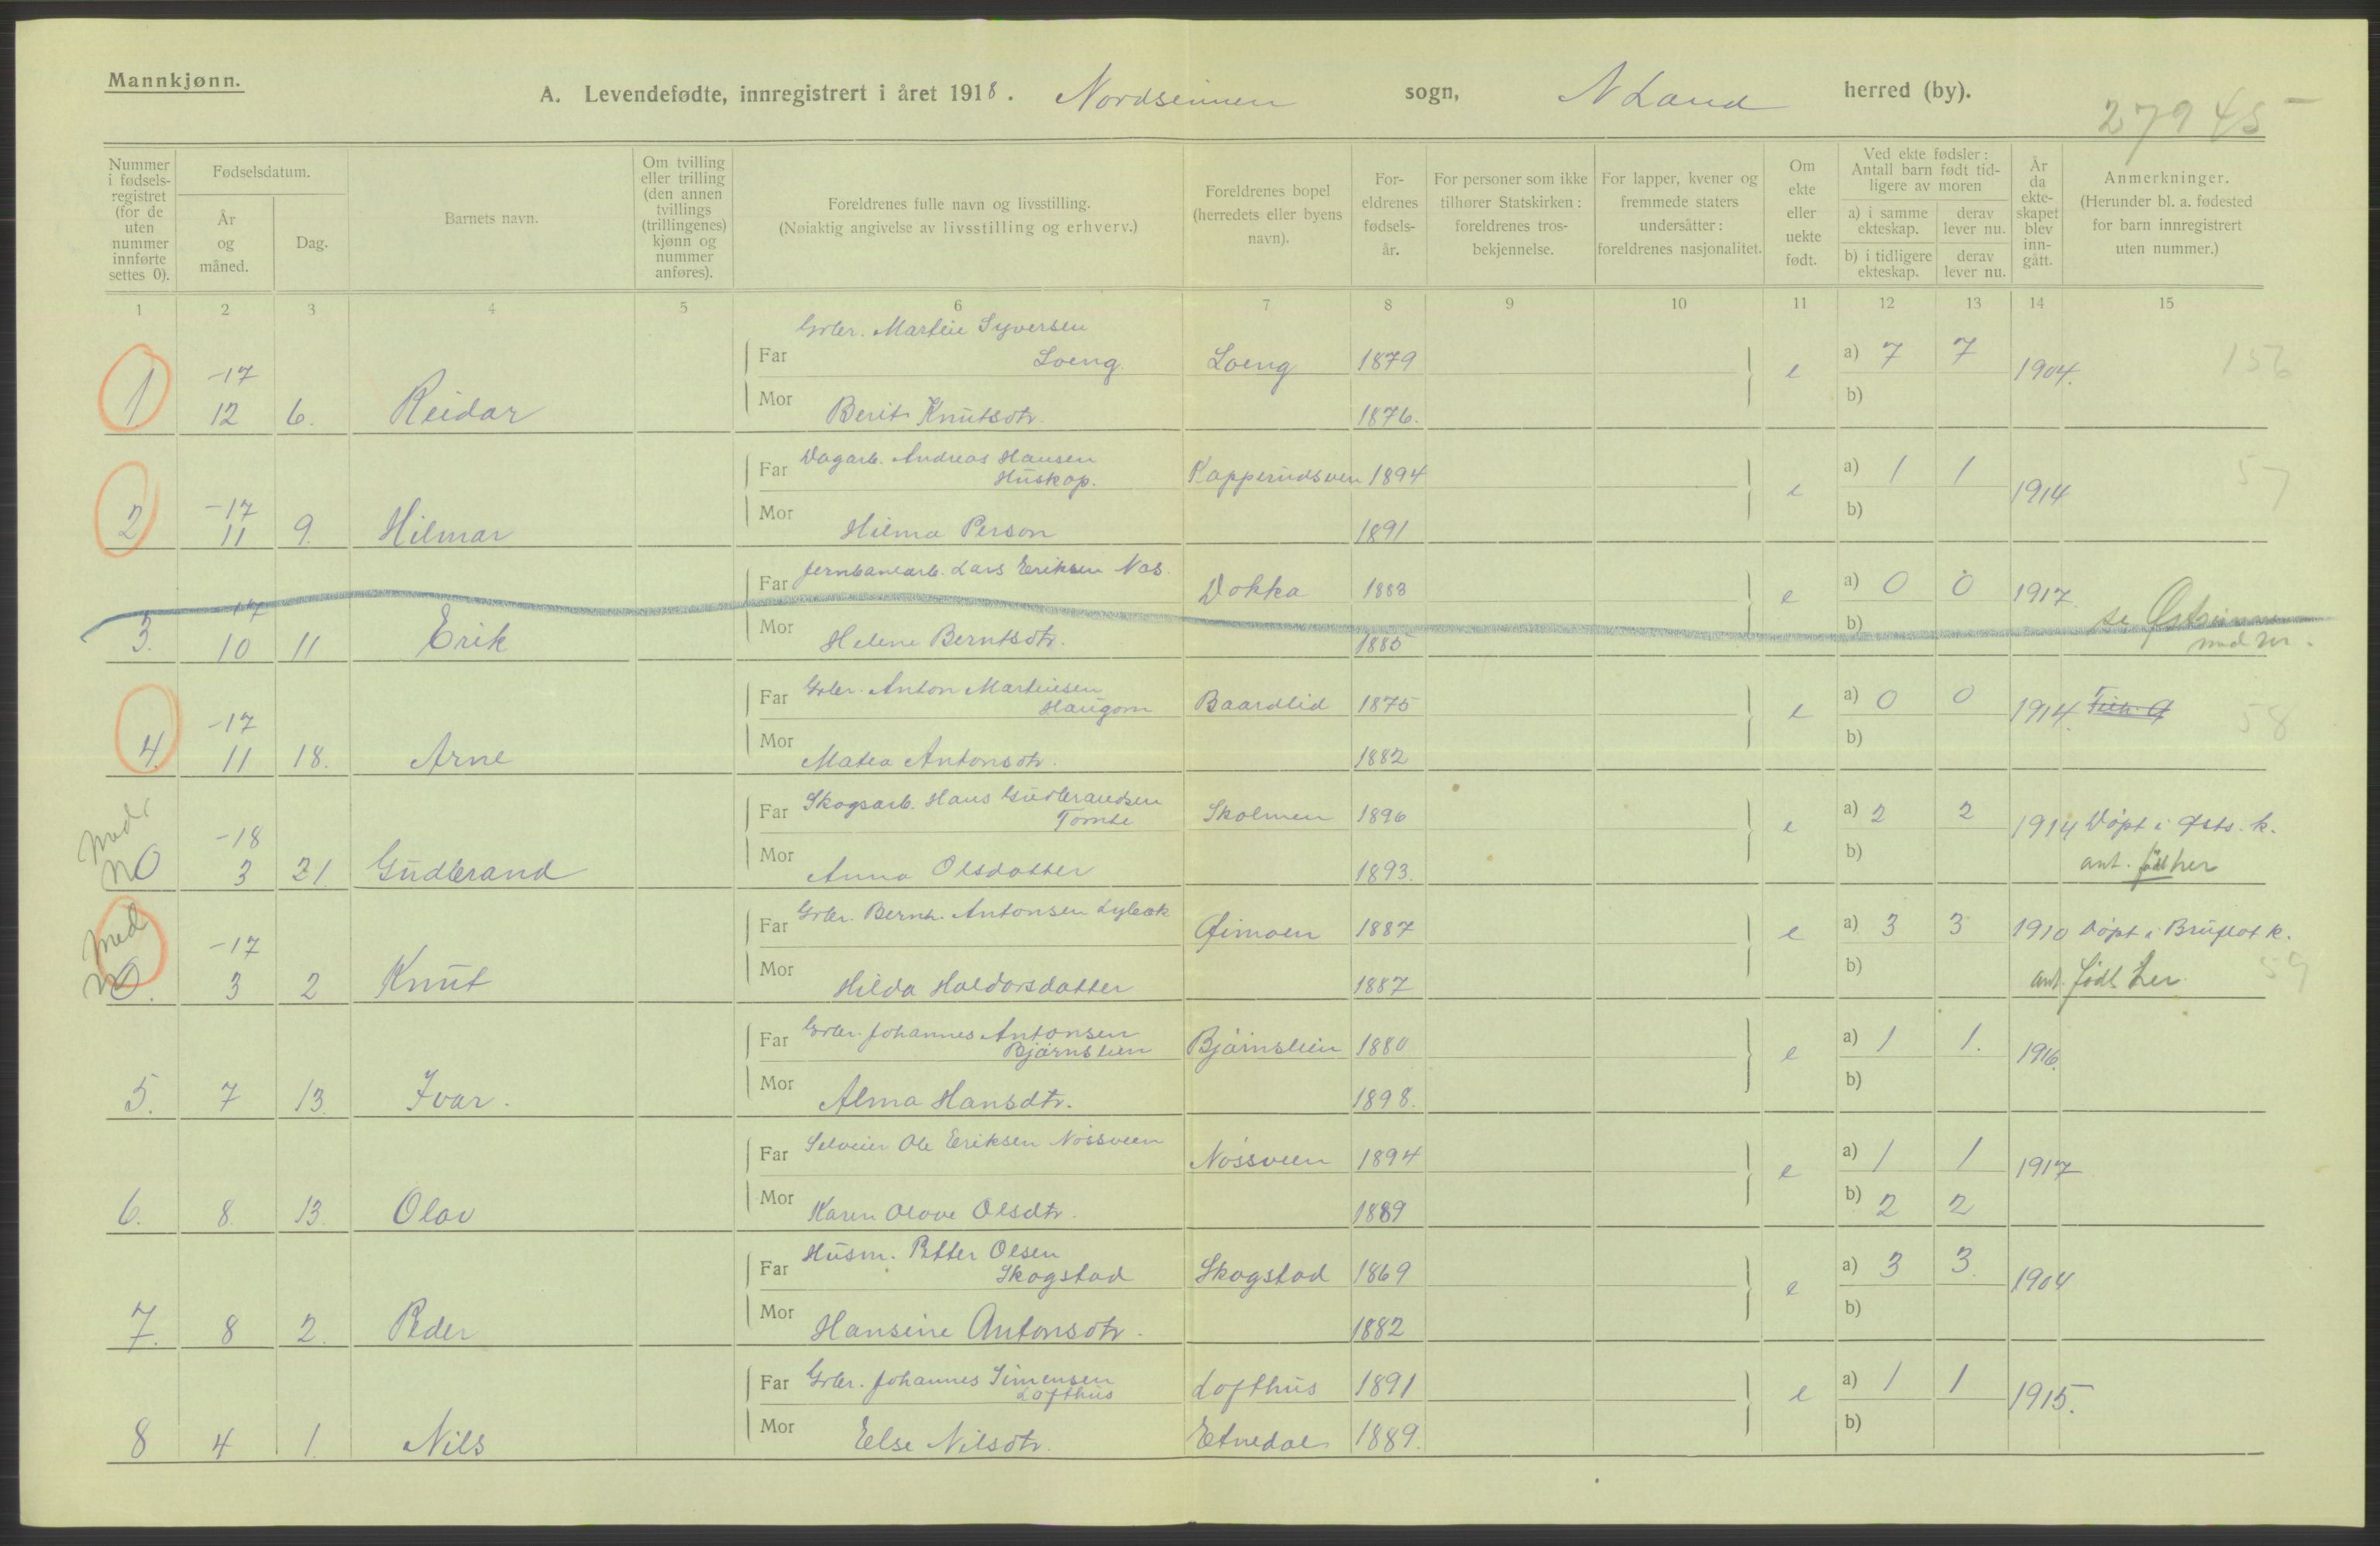 Mannkjønn.
A. Levendefødte, innregistrert i året 1918. Nordsinnen sogn, N Land herred (by).
27945
Nummer i fødselsregistret (for de uten nummer innførte settes 0).
Fødselsdatum.
År og måned.
Dag.
Barnets navn.
Om tvilling eller trilling (den annen tvillings (trillingenes) kjønn og nummer anføres).
Foreldrenes fulle navn og livsstilling.
(Nøiaktig angivelse av livsstilling og erhverv.)
Foreldrenes bopel (herredets eller byens navn).
Foreldrenes fødselsår.
For personer som ikke tilhører Statskirken: foreldrenes trosbekjennelse.
For lapper, kvener og fremmede staters undersåtter: foreldrenes nasjonalitet.
Om ekte eller uekte født.
Ved ekte fødsler: Antall barn født tidligere av moren
a) i samme ekteskap.
derav lever nu.
b) i tidligere ekteskap.
derav lever nu.
År da ekteskapet blev inngått.
Anmerkninger.
(Herunder bl. a. fødested for barn innregistrert uten nummer.)
1 2 3 4 5 6 7 8 9 10 11 12 13 14 15
Grbr. Martin Syversen
Far Loeng Loeng 1879 a) 7 7
1 -17 12 6. Reidar e 1904. 156
Mor Berit Knutsdtr. 1876. b)
Far Dagarb. Andreas Hansen
Huskop. Kapperudsven 1894 a) 1 1
2 -17 11 9. Hilmar e 1914 57
Mor Hilma Person 1891 b)
Far Jernbanearb. Lars Eriksen Nas. Dokka 1883 a) 0 0
3. -17 10 11 Erik e 1917. se Østsinnen
Mor Helene Berntsdtr. 1885 b)
Far Grbr. Anton Martinsen
Haugom Baardlid 1875 a) 0 0
4. -17 11 18. Arne e 1914. 58
Mor Matea Antonsdtr. 1882 b)
Far Skogsarb. Hans Gudbrandsen
Tomte Skolmen 1896 a) 2 2
med
no -18 3 21 Gudbrand e 1914 Døpt i Østs. k.
ant. født her
Mor Anna Olsdatter 1893. b)
Far Grbr. Bernh. Antonsen Lybæk Øimoen 1887 a) 3 3
med
no. -17 3 2 Knut e 1910 Døpt i Bruflat k.
ant. født her 59
Mor Hilda Haldorsdatter 1887 b)
Far Grbr. Johannes Antonsen
Bjørnslien Bjørnslien 1880 a) 1 1.
5. 7 13. Ivar. e 1916.
Mor Alma Hansdtr. 1898. b)
Far Selveier Ole Eriksen Nøssveen Nøssveen 1894 a) 1 1
6. 8. 13. Olav e 1917
Mor Karen Olave Olsdtr. 1889 b) 2 2
Far Husm. Petter Olsen
Skogstad Skogstad 1869 a) 3 3.
7. 8 2. Peder e 1904
Mor Hansine Antonsdtr. 1882 b)
Far Grbr. Johannes Simensen
Lofthus Lofthus 1891 a) 1 1
8 4 1. Nils e 1915.
Mor Else Nilsdtr. Etnedal 1889. b)